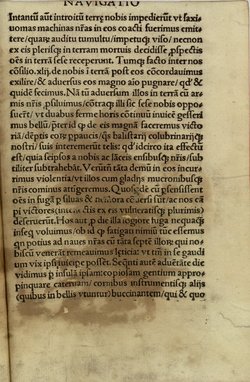 NAVIGATIO
Intantũ aũt introitũ terrę nobis impedierũt vt saxi/
uomas machinas nr̃as in eos coacti fuerimus emitte
re/quare auditu tumultu/impetuq; viso/necnon
ex eis plerisq; in terram mortuis decidisse/pspectis
oẽs in terrã sese receperunt. Tumq; facto inter nos
cõsilio. xlij. de nobis in terrã post eos cõcordauimus
exilire/& aduersus eos magno aĩo pugnare/qđ &
quidẽ fecimus. Nã tũ aduersum illos in terrã cũ
armis prosiluimus/cõtraq; illi sic sese nobis oppo/
suerũt/vt duabus ferme horis cõtinuũ inuicẽ gesseri
mus bellũ/pter id qđ de eis magnã faceremus victo
riã/dẽptis eorũ ppaucis/quos balistarij colubrinarijq;
nostri/suis interemerũt telis: qđ idcirco ita effectũ
est/quia seipsos a nobis ac lãceis ensibusq; nr̃is/sub
tiliter subtrahebãt. Verunt̃n tãta demũ in eos incur
rimus violentia/vt illos cum gladijs mucronibusq;
nr̃is cominus attigeremus. Quosqdẽ cũ persensissent
oẽs in fugã p siluas & ncmora cõuersi sũt/ac nos cã
pi victores interfectis ex eis vulneratisq; plurimis
deseruerũt. Hos aut p die illa longiore fuga nequaq;
inseq voluimus/ob id q fatigati nimiũ tũc essemus
qn potius ad naues nr̃as cũ tãta septẽ illorẽ qui no/
biscũ venerãt remeauimus lęticia: vt tm̃ in se gaudi
um vix ipsi suscipe posset. Sequẽti aut aduẽtare di/
vidimus p insulã ipsam copiosam gentium appro/
pinquare cateruam/cornibus instrumentisq; alijs
(quibus in bellis vtuntur) buccinantem/qui & quo